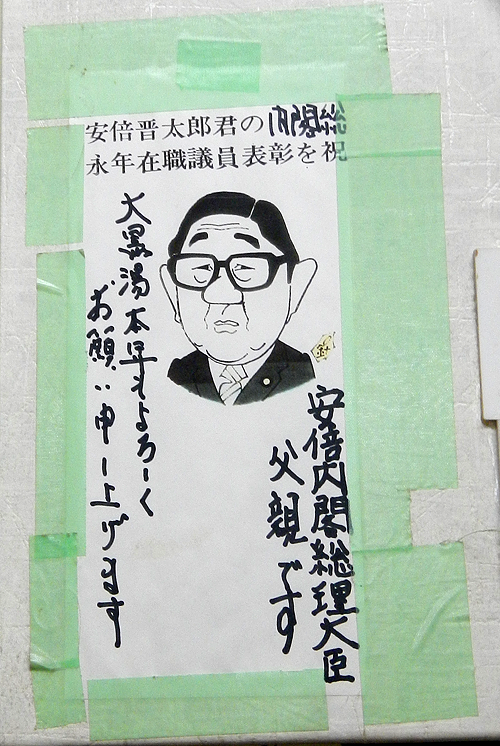 安倍晋太郎君の内閣総
永年在職議員表彰を祝
安倍内閣総理大臣
父親です
大黒湯本年もよろしく
お願い申し上げます